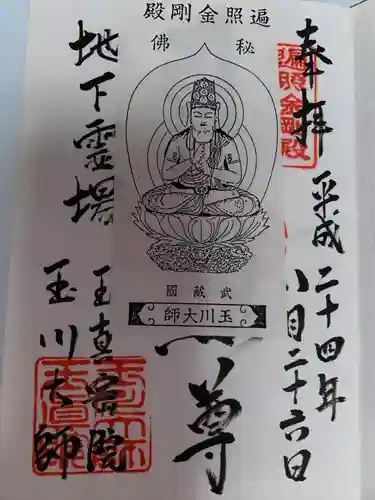 奉拝
平成二十四年
八月二十六日
遍照金剛殿
遍照金剛殿
秘佛
武蔵國
玉川大師
尊
地下霊場
玉真密院
玉川大師